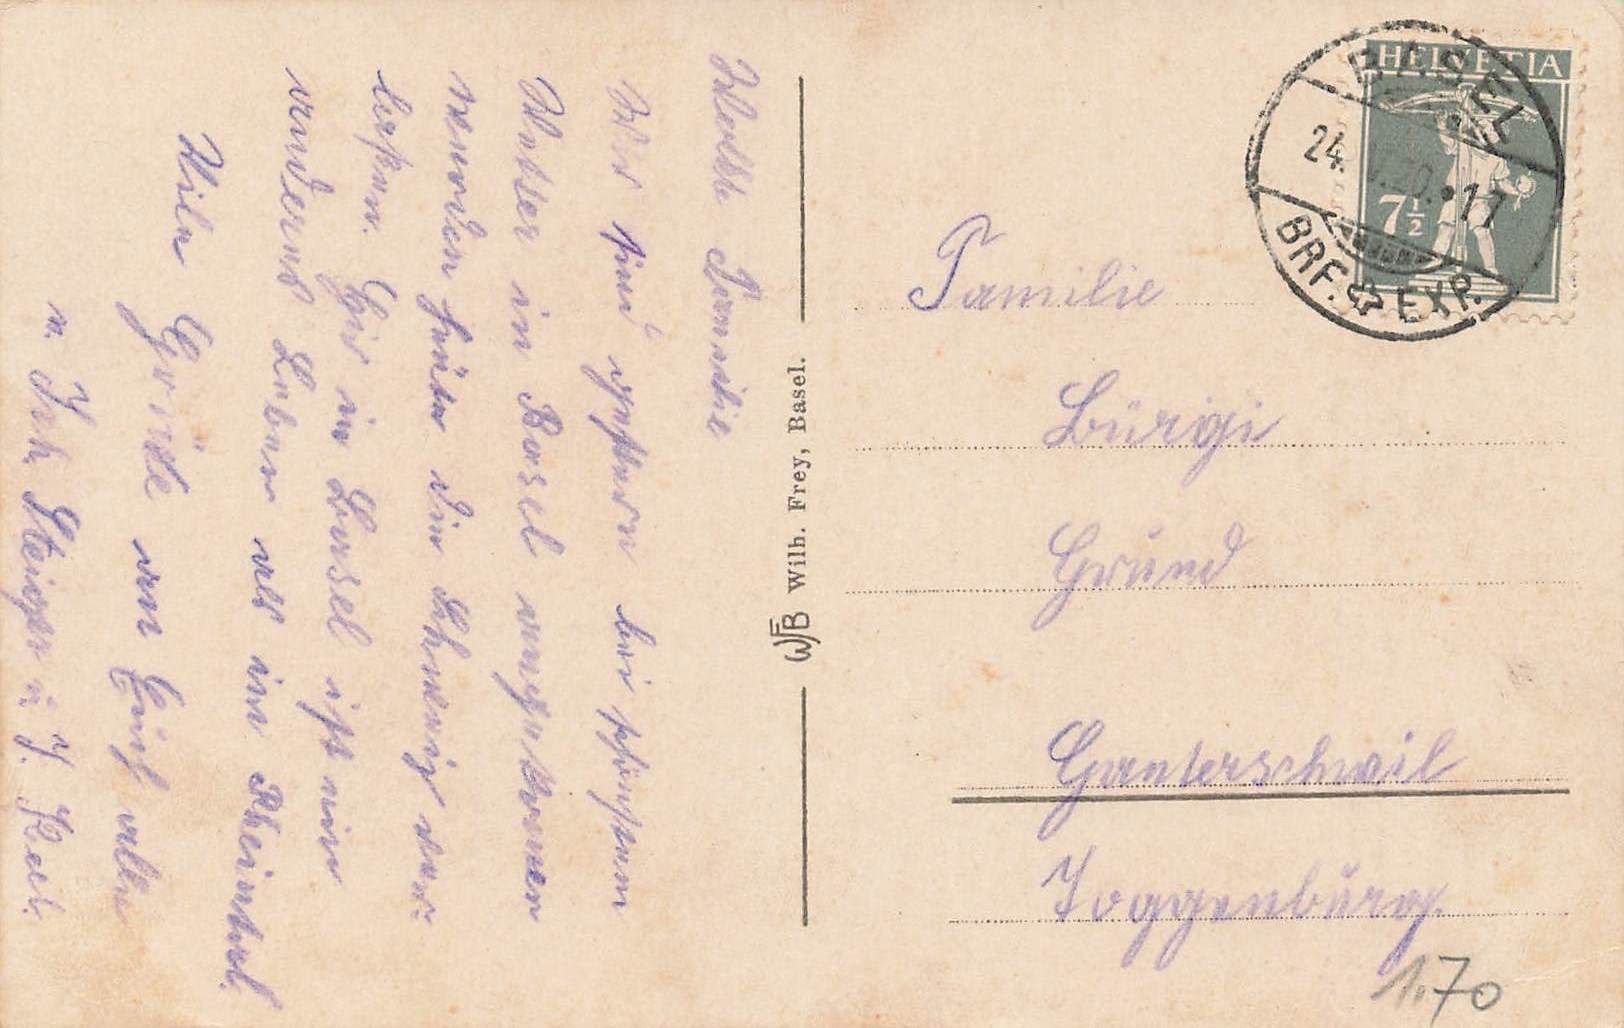 Werte Familie
Wir sind gestern bei schönstem
Wetter in Basel angekommen
werden heute die Schweiz ver-
lassen. Hier in Basel ist ein
anderes Leben als im Rheintal.
Viele Grüße an Euch alle
u. Joh. Steiger u. J. Keel.
Wilh. Frey, Basel.
WFB
HELVETIA
7½
BASEL
24.
BRF. EXP.
Familie
Bürgi
Grund
Ganterschwil
Toggenburg.
1.70